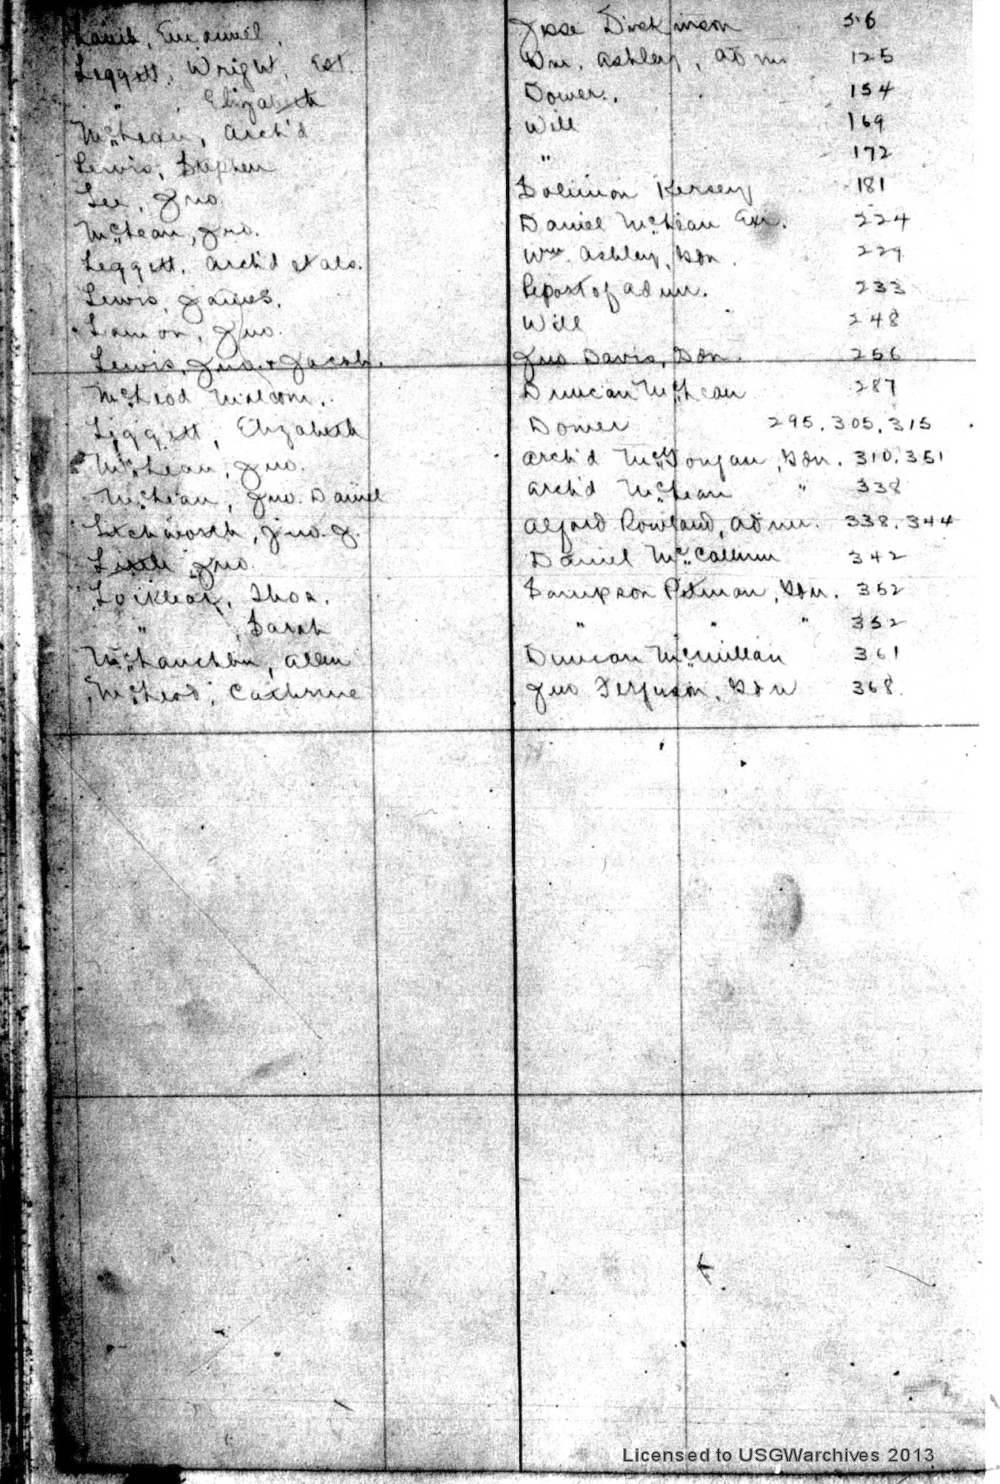 Emanuel, Jesse Dickinson 56
Leggett, Wright, Est. Wm. Ashley, Adm. 125
" , Elizabeth Dower. 154
McLean, Arch'd Will 169
Lewis, Stephen " 172
Lee, Jno. Solomon Kersey 181
McLean, Jno. Daniel McLean Exr. 224
Leggett, Arch'd et als. Wm. Ashley, Gdn. 229
Lewis, James. Report of adm. 233
Lamon, Jno. Will 248
Lewis, Jno. & Jacob. Jno Davis, Gdn. 256
McLeod Malcom. Duncan McLean 287
Liggett, Elizabeth Dower 295, 305, 315
McLean, Jno. Arch'd Gdn. 310, 351
McLean, Jno. Daniel Arch'd McLean " 338
Letchworth, Jno. J. Alfred Rowland, Adm. 338, 344
Little Jno. Daniel McCallum 342
Locklear, Thos. Sampson Pitman, Gdn. 352
" , Sarah " " " 352
McLauchlin, Allen Duncan McMillan 361
McLeod, Cathrine Jno Ferguson, Gdn 368
Licensed to USGWarchives 2013